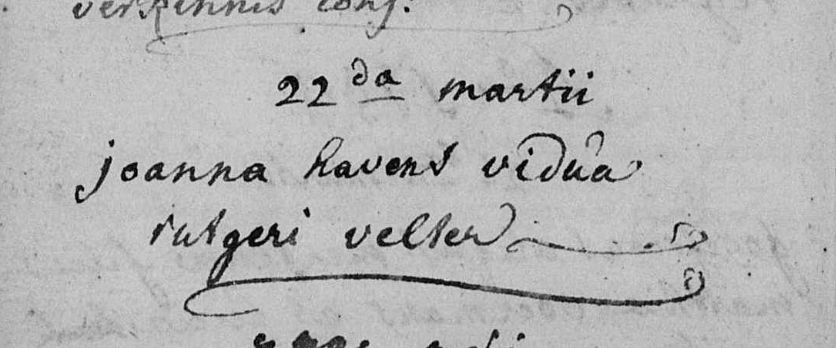 verkennis conj.
22da martii
joanna havens vidua
rutgeri velter